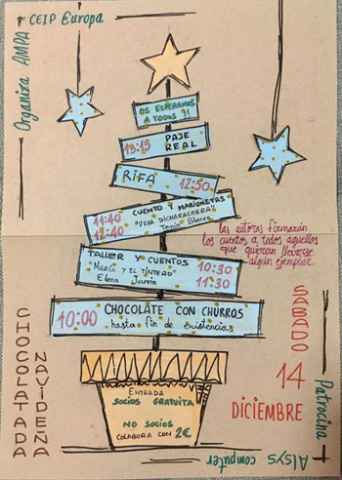 Organiza AMPA CEIP Europa
OS ESPERAMOS
A TODOS !!
13:15 PAJE
REAL
RIFA 12:50
11:40 CUENTO Y MARIONETAS
12:40 "VERA DICHARACHERA"
Tania Blanco
las autoras firmarán
los cuentos a todos aquellos
que quieran llevarse
algún ejemplar.
TALLER Y CUENTOS 10:30
"MARÍA Y EL TINTERO" 11:30
Elena Jarrín
10:00 CHOCOLATE CON CHURROS
hasta fin de existencias
CHOCOLATADA
NAVIDEÑA
SÁBADO
14
DICIEMBRE
ENTRADA
SOCIOS GRATUITA
NO SOCIOS
COLABORA CON 2€
Patrocina
Alsys computer